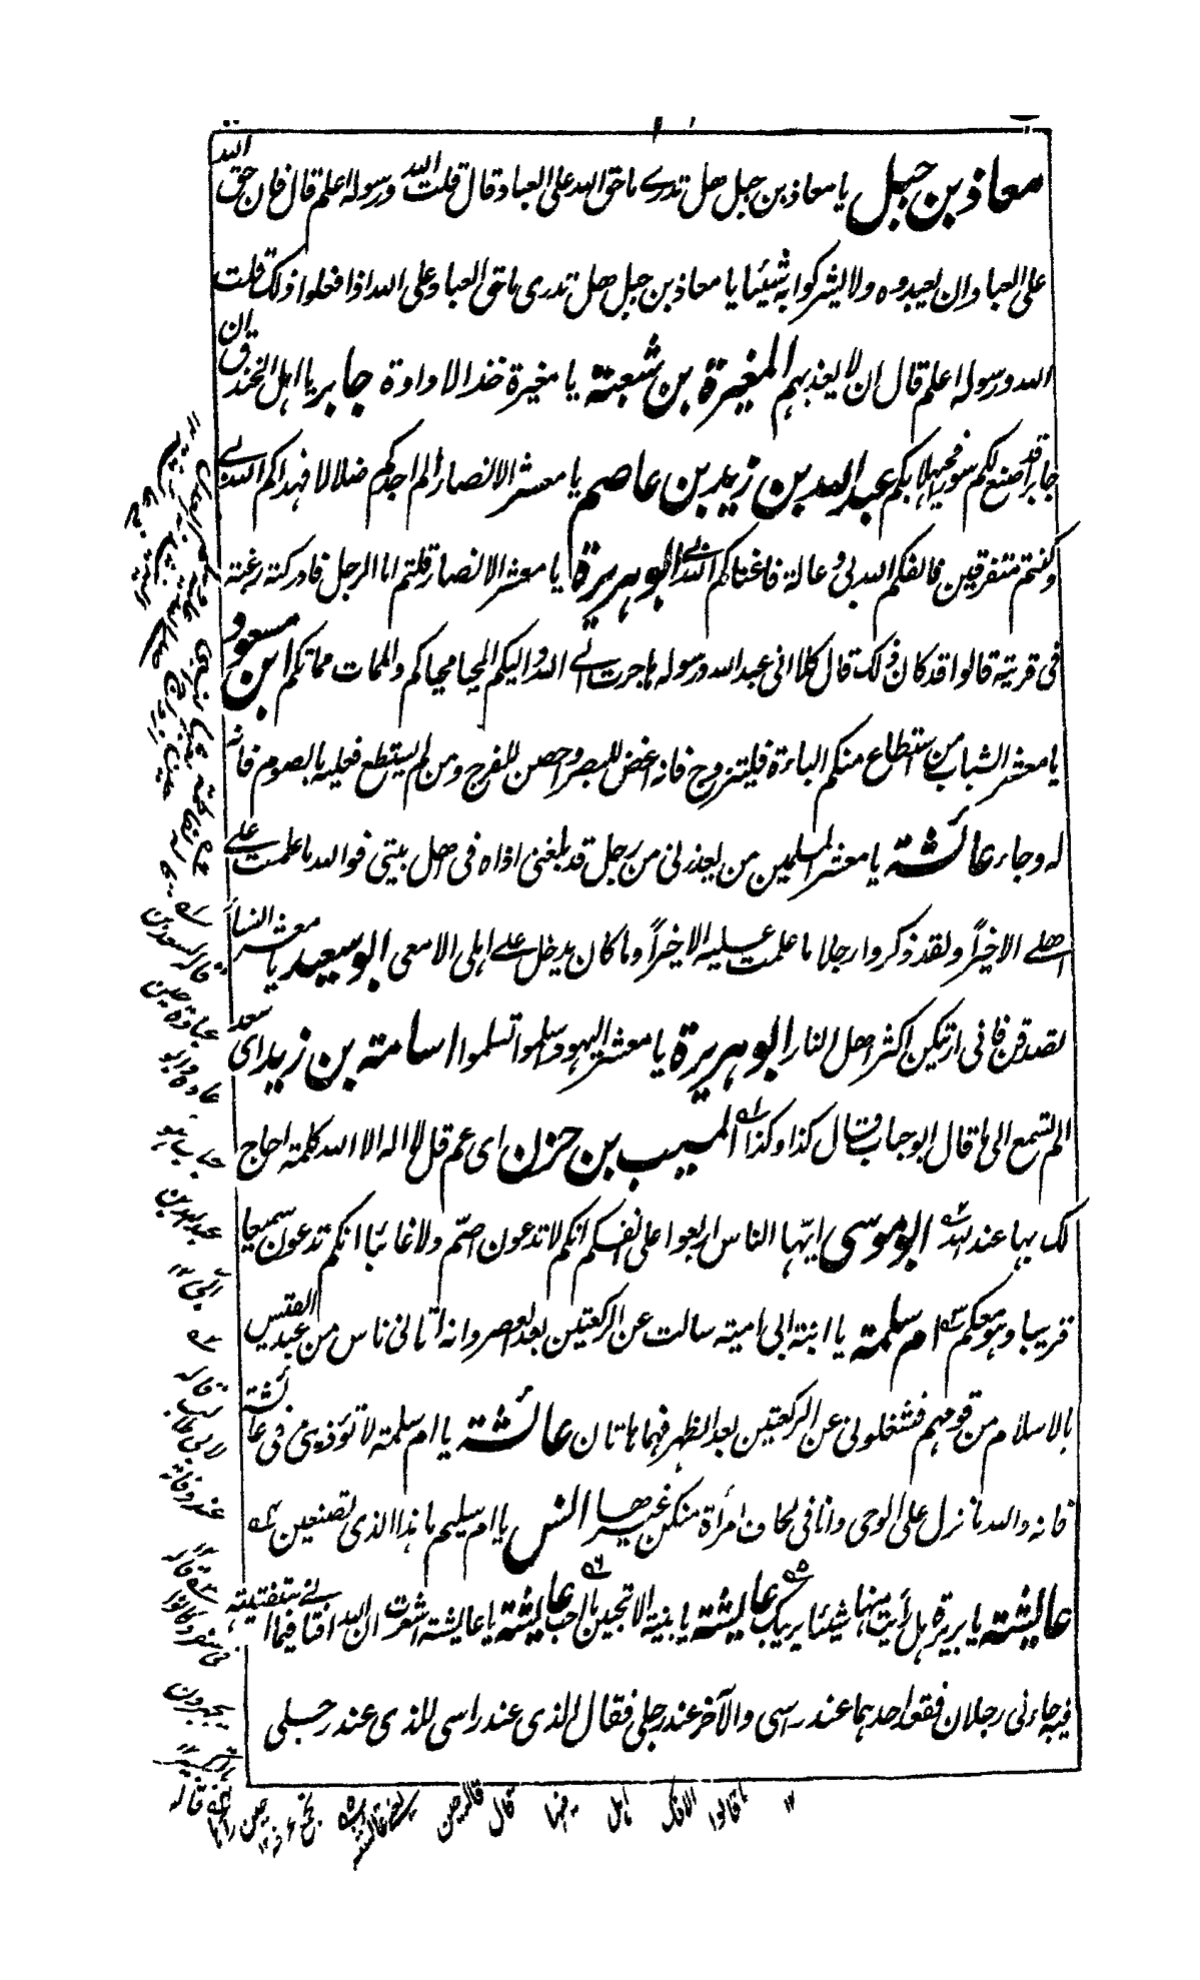 معاذ بن جبل يا معاذ بن جبل هل تدرى ما حق الله على العباد قال قلت الله ورسوله اعلم قال فان حق الله
على العباد ان يعبدوه ولا يشركوا به شيئا يا معاذ بن جبل هل تدرى ما حق العباد على الله اذا فعلوا ذلك قلت
الله ورسوله اعلم قال ان لا يعذبهم المغيرة بن شعبة يا مغيرة خذ الاداوة جابر يا اهل الخندق ان
جابرا قد صنع لكم سورا فحيهلا بكم عبد الله بن زيد بن عاصم يا معشر الانصار الم اجدكم ضلالا فهداكم الله بى
وكنتم متفرقين فالفكم الله بى وعالة فاغناكم الله بى ابو هريرة يا معشر الانصار قلتم اما الرجل فادركته رغبة
فى قريته قالوا قد كان ذلك قال كلا انى عبد الله ورسوله هاجرت الى الله واليكم المحيا محياكم والممات مماتكم ابن مسعود
يا معشر الشباب من استطاع منكم الباءة فليتزوج فانه اغض للبصر واحصن للفرج ومن لم يستطع فعليه بالصوم فانه
له وجاء عائشة يا معشر المسلمين من يعذرنى من رجل قد بلغنى اذاه فى اهل بيتى فوالله ما علمت على
اهلى الا خيراً ولقد ذكروا رجلا ما علمت عليه الا خيراً وما كان يدخل على اهلى الا معى ابو سعيد يا معشر النساء
تصدقن فانى اريتكن اكثر اهل النار ابو هريرة يا معشر اليهود اسلموا تسلموا اسامة بن زيد اى سعد
الم تسمع الى ما قال ابو حباب قال كذا وكذا المسيب بن حزن اى عم قل لا اله الا الله كلمة احاج
لك بها عند الله ابو موسى ايها الناس اربعوا على انفسكم انكم لا تدعون اصم ولا غائبا انكم تدعون سميعا
قريبا وهو معكم ام سلمة يا ابنة ابى امية سالت عن الركعتين بعد العصر وانه اتانى ناس من عبد القيس
بالاسلام من قومهم فشغلونى عن الركعتين بعد الظهر فهما هاتان عائشة يا ام سلمة لا تؤذينى فى عائشة
فانه والله ما نزل على الوحى وانا فى لحاف امرأة منكن غيرها انس يا ام سليم ما هذا الذى تصنعين
عايشة يا بريرة هل رأيت منها شيئا يريبك عايشة يا بنية الا تحبين ما احب عايشة يا عايشة اشعرت ان الله افتانى فيما استفتيته
فيه جاءنى رجلان فقعد احدهما عند راسى والآخر عند رجلى فقال الذى عند راسى للذى عند رجلى
قاله لسعد بن
عبادة حين
عاده
عبد الله بن
ابى ١٢
قاله
لابى طالب
عند وفاته
قاله
فى سفر وكانوا
يجهرون
بالتكبير ١٢
قاله
حين
قاله حين
قال
لها
اهل
الافك
ما قالوا
١٢